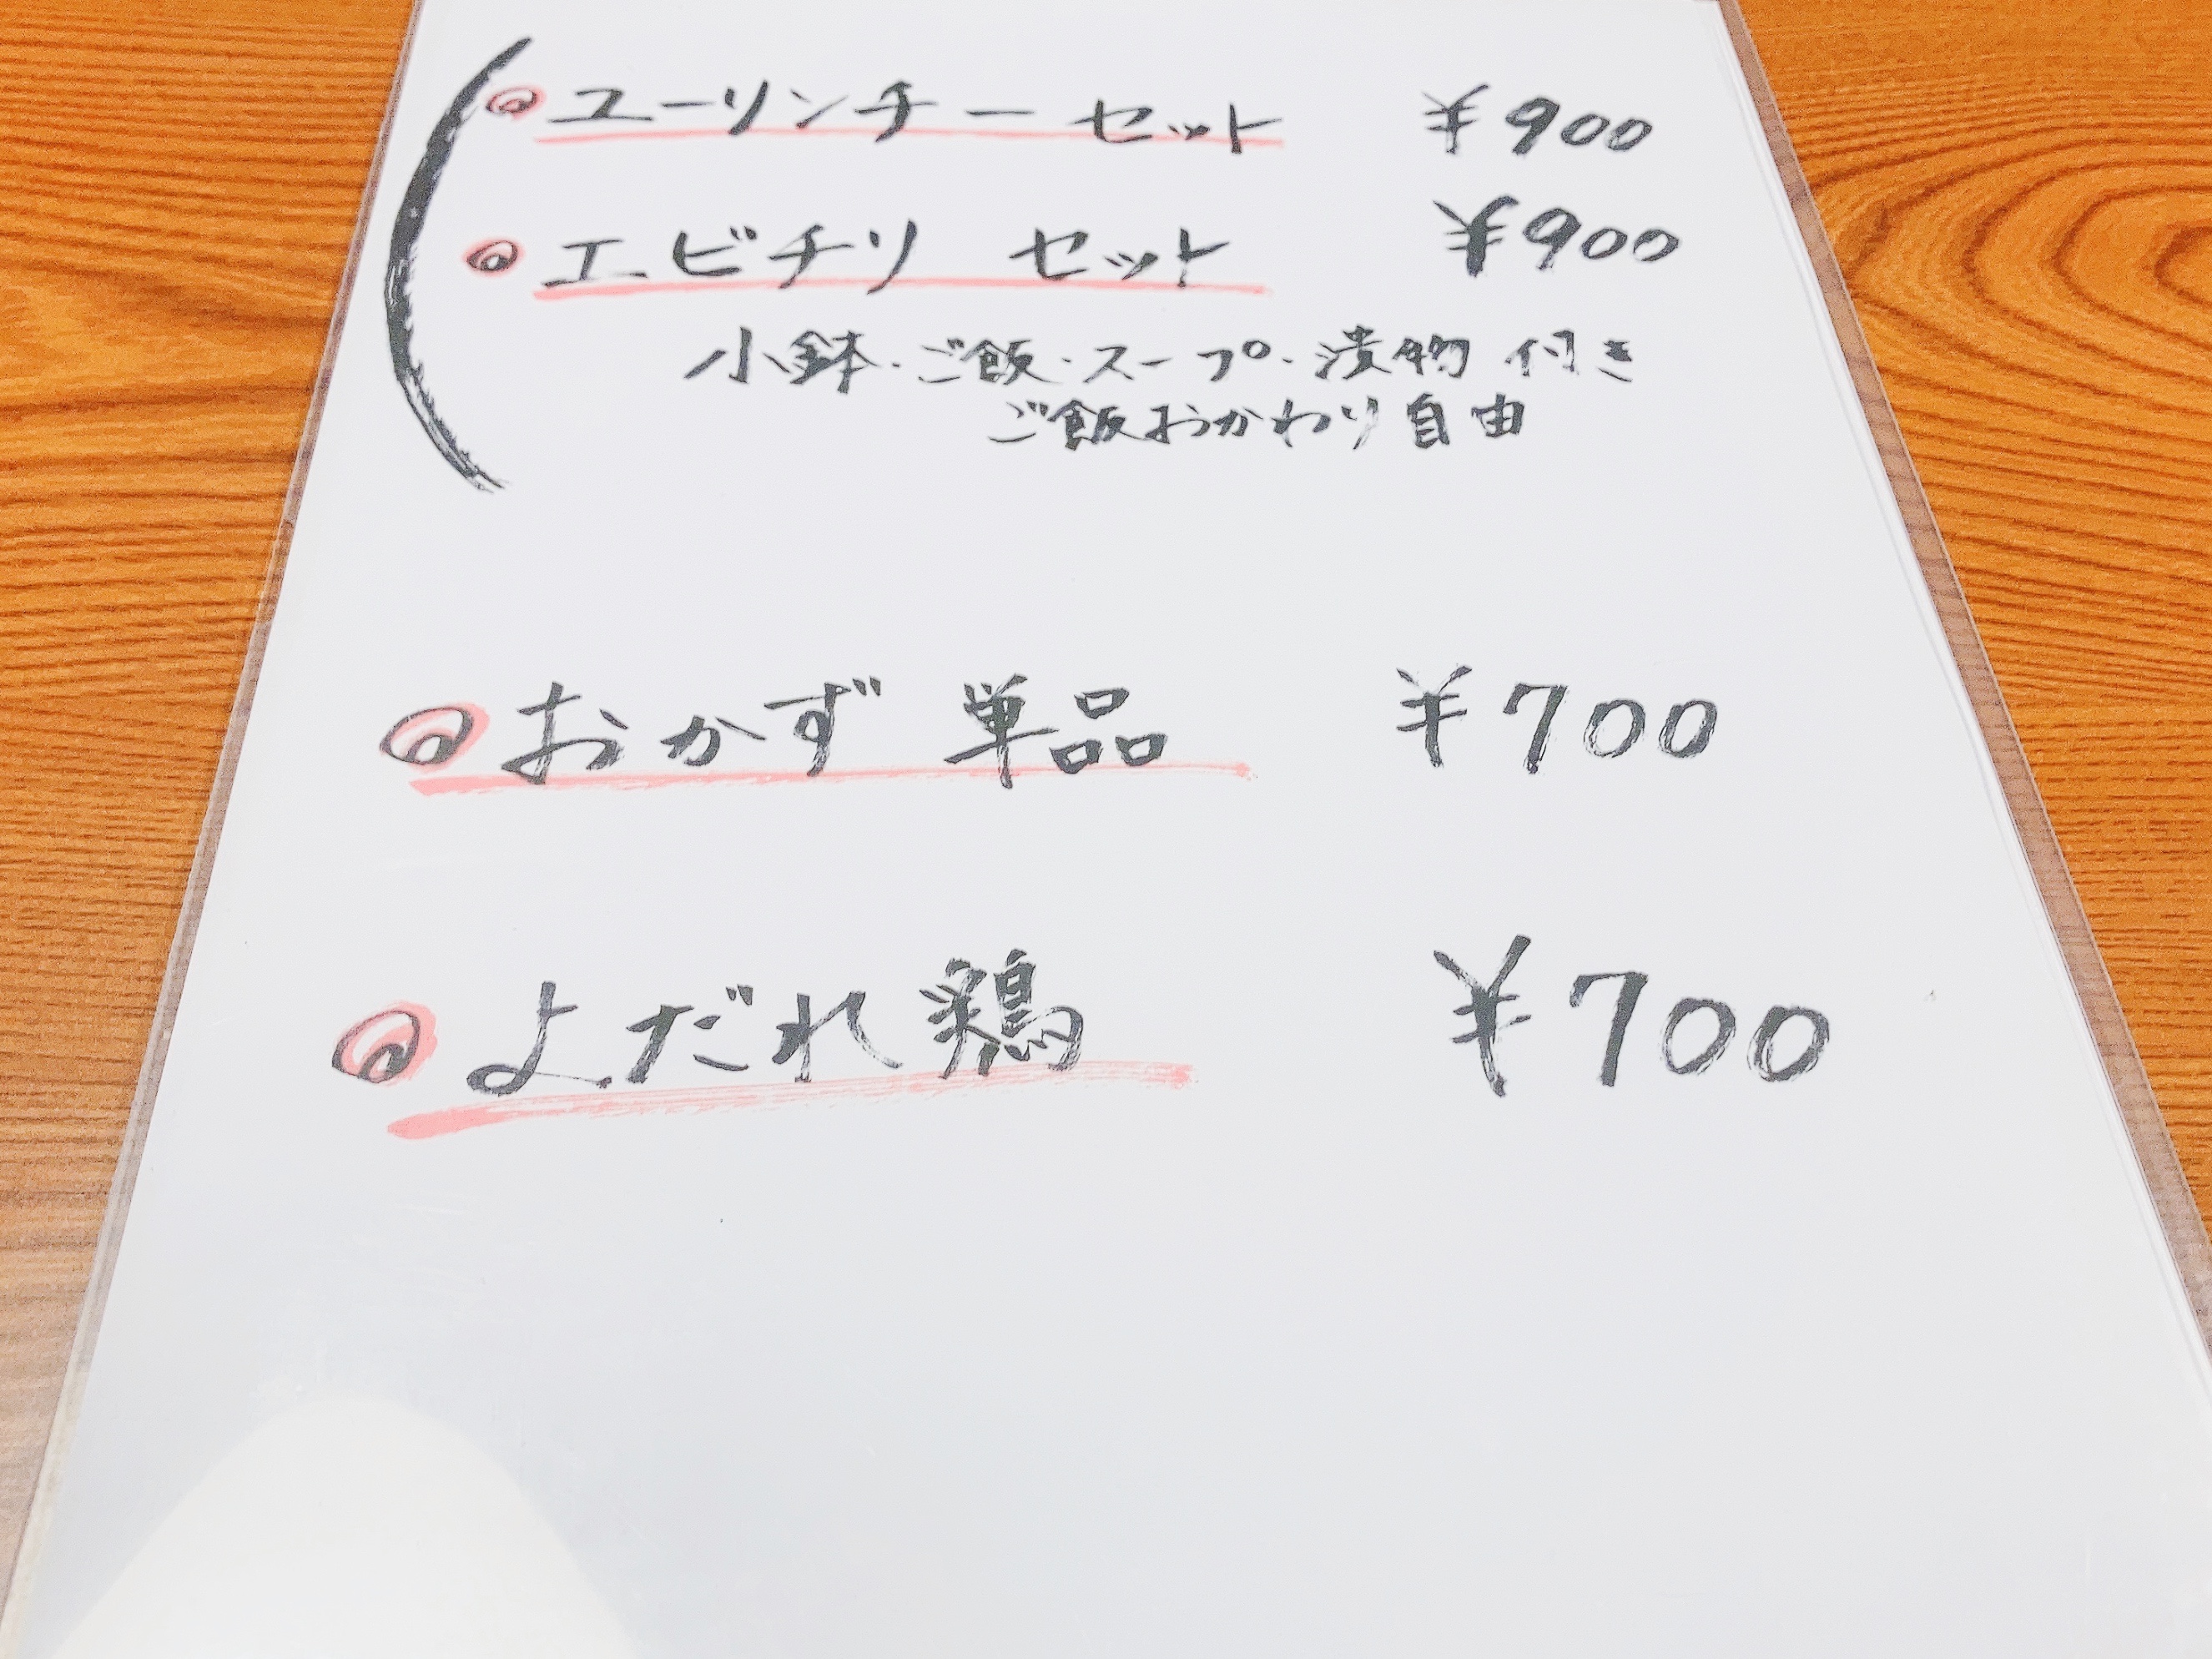 ユーリンチーセット ¥900
エビチリ セット ¥900
小鉢・ご飯・スープ・漬物 付き
ご飯おかわり自由
おかず 単品 ¥700
よだれ鶏 ¥700